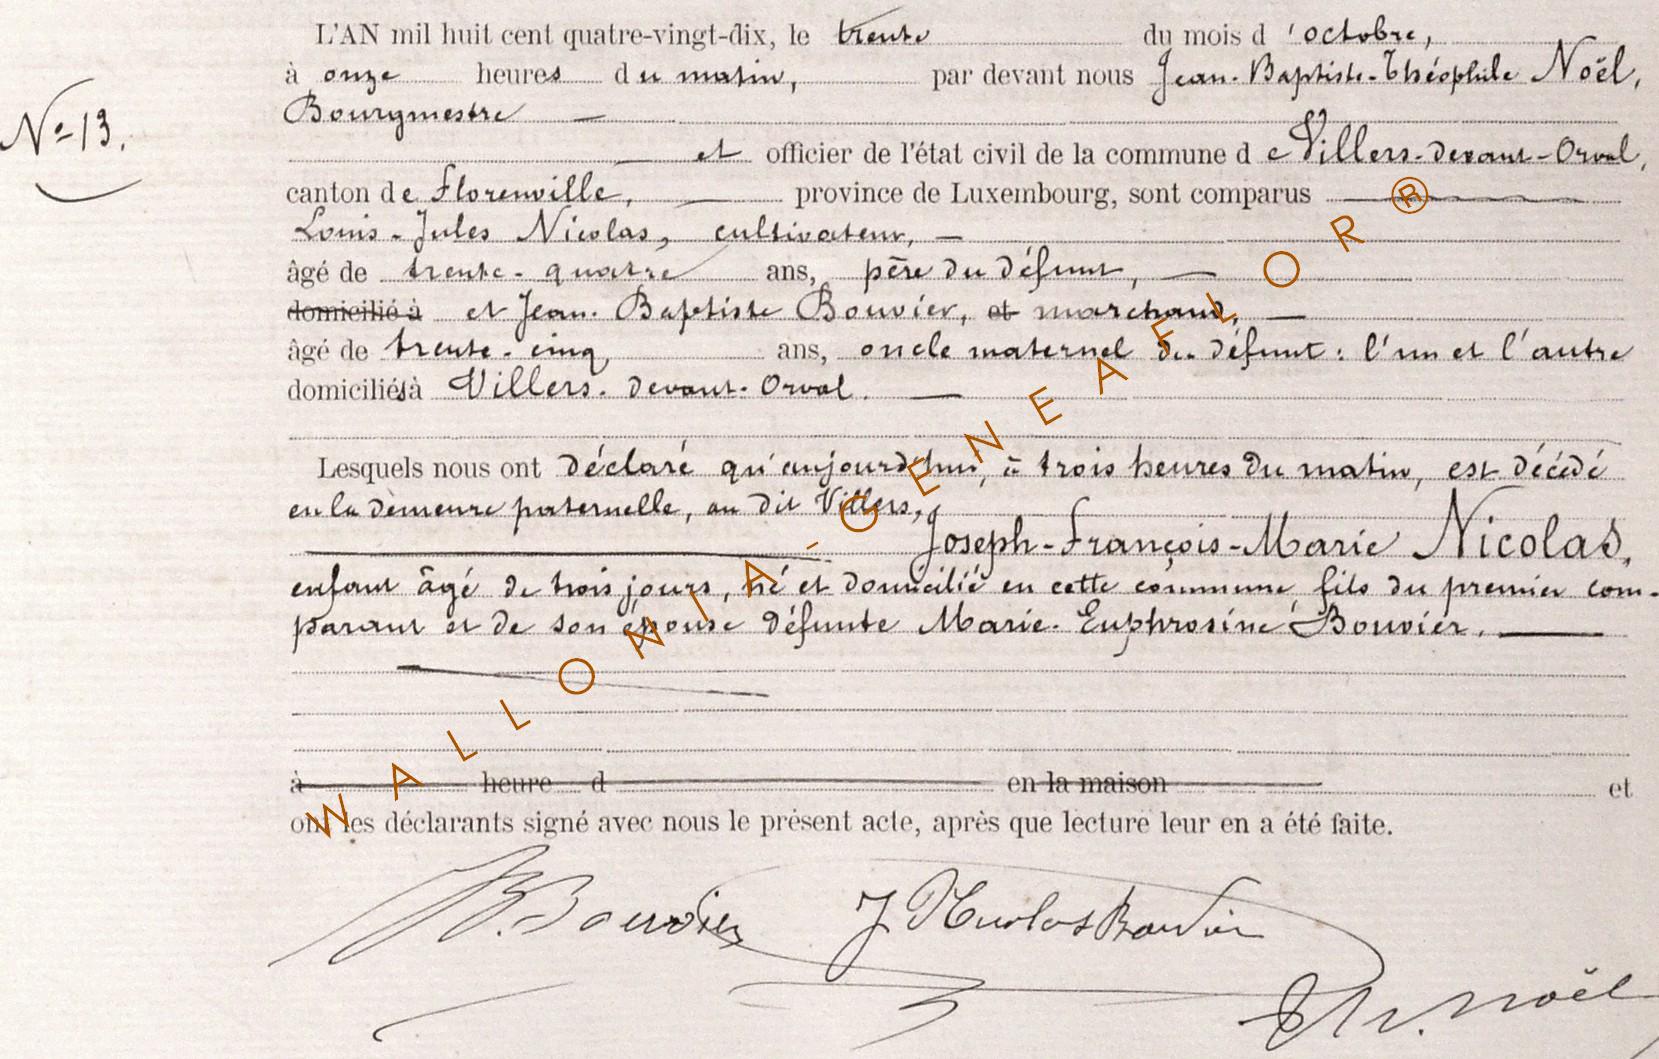 L'AN mil huit cent quatre-vingt-dix, le trente du mois d'octobre,
à onze heures du matin, par devant nous Jean-Baptiste-Théophile Noël,
Bourgmestre —
N° 13.
— et officier de l'état civil de la commune de Villers-devant-Orval,
canton de Florenville, — province de Luxembourg, sont comparus —
Louis-Jules Nicolas, cultivateur, —
âgé de trente-quatre ans, père du défunt, —
domicilié à et Jean-Baptiste Bouvier, et marchand, —
âgé de trente-cinq ans, oncle maternel du défunt : l'un et l'autre
domiciliés à Villers-devant-Orval. —
Lesquels nous ont déclaré qu'aujourd'hui, à trois heures du matin, est décédé
en la demeure paternelle, au dit Villers,
Joseph-François-Marie Nicolas,
enfant âgé de trois jours, né et domicilié en cette commune, fils du premier com-
parant et de son épouse défunte Marie-Euphrosine Bouvier. —
à heure d en la maison et
ont les déclarants signé avec nous le présent acte, après que lecture leur en a été faite.
B. Bouvier J Nicolas Bouvier
Th. Noël
WALLONIA-GENEAFLOR®